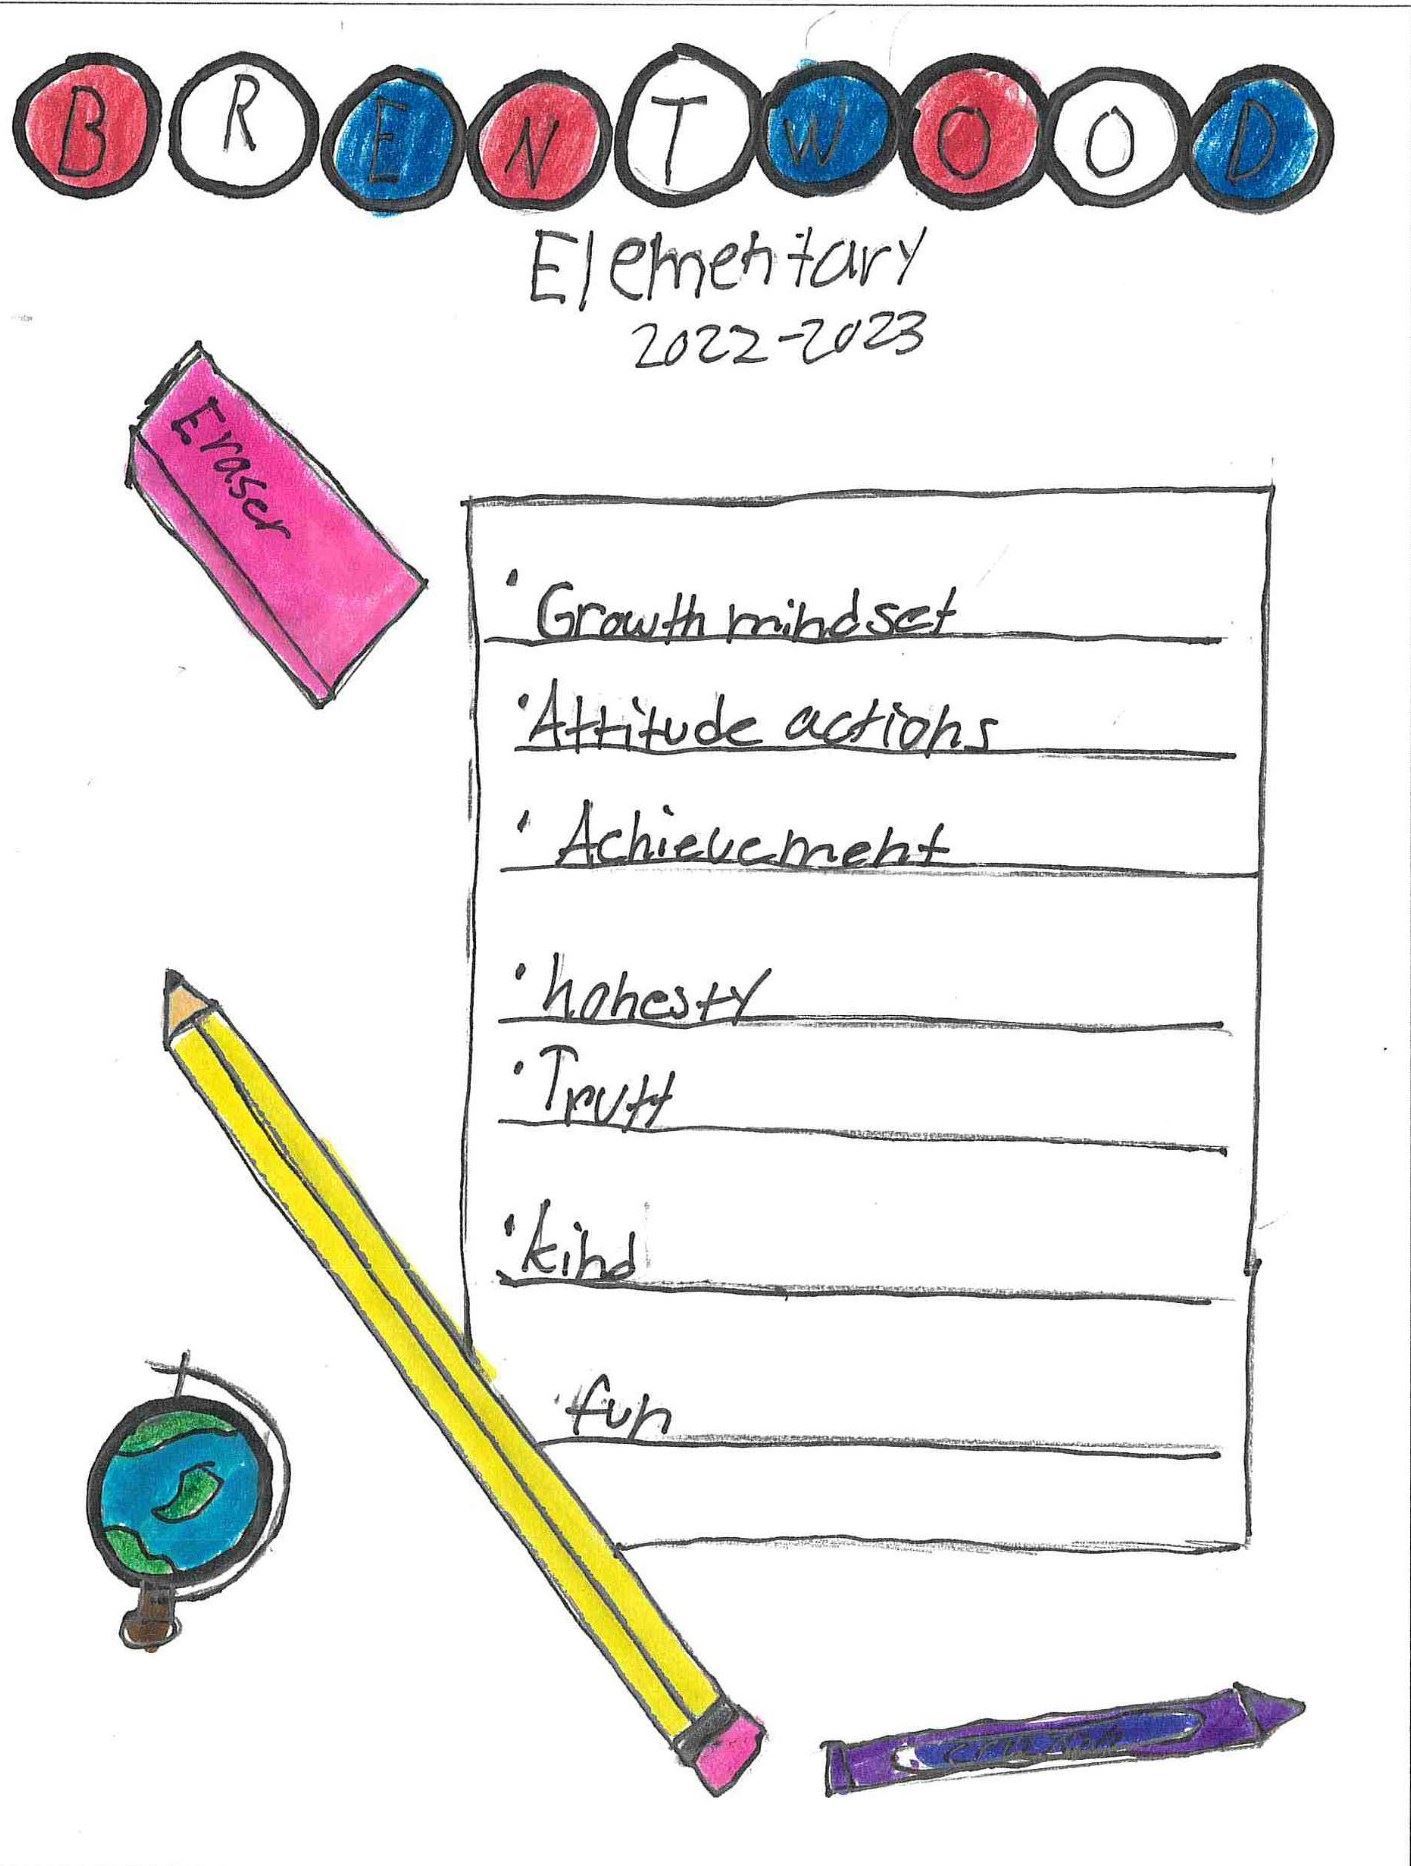 BRENTWOOD
Elementary
2022-2023
Eraser
· Growth mindset
· Attitude actions
· Achievement
· honesty
· Trutt
· kind
· fun